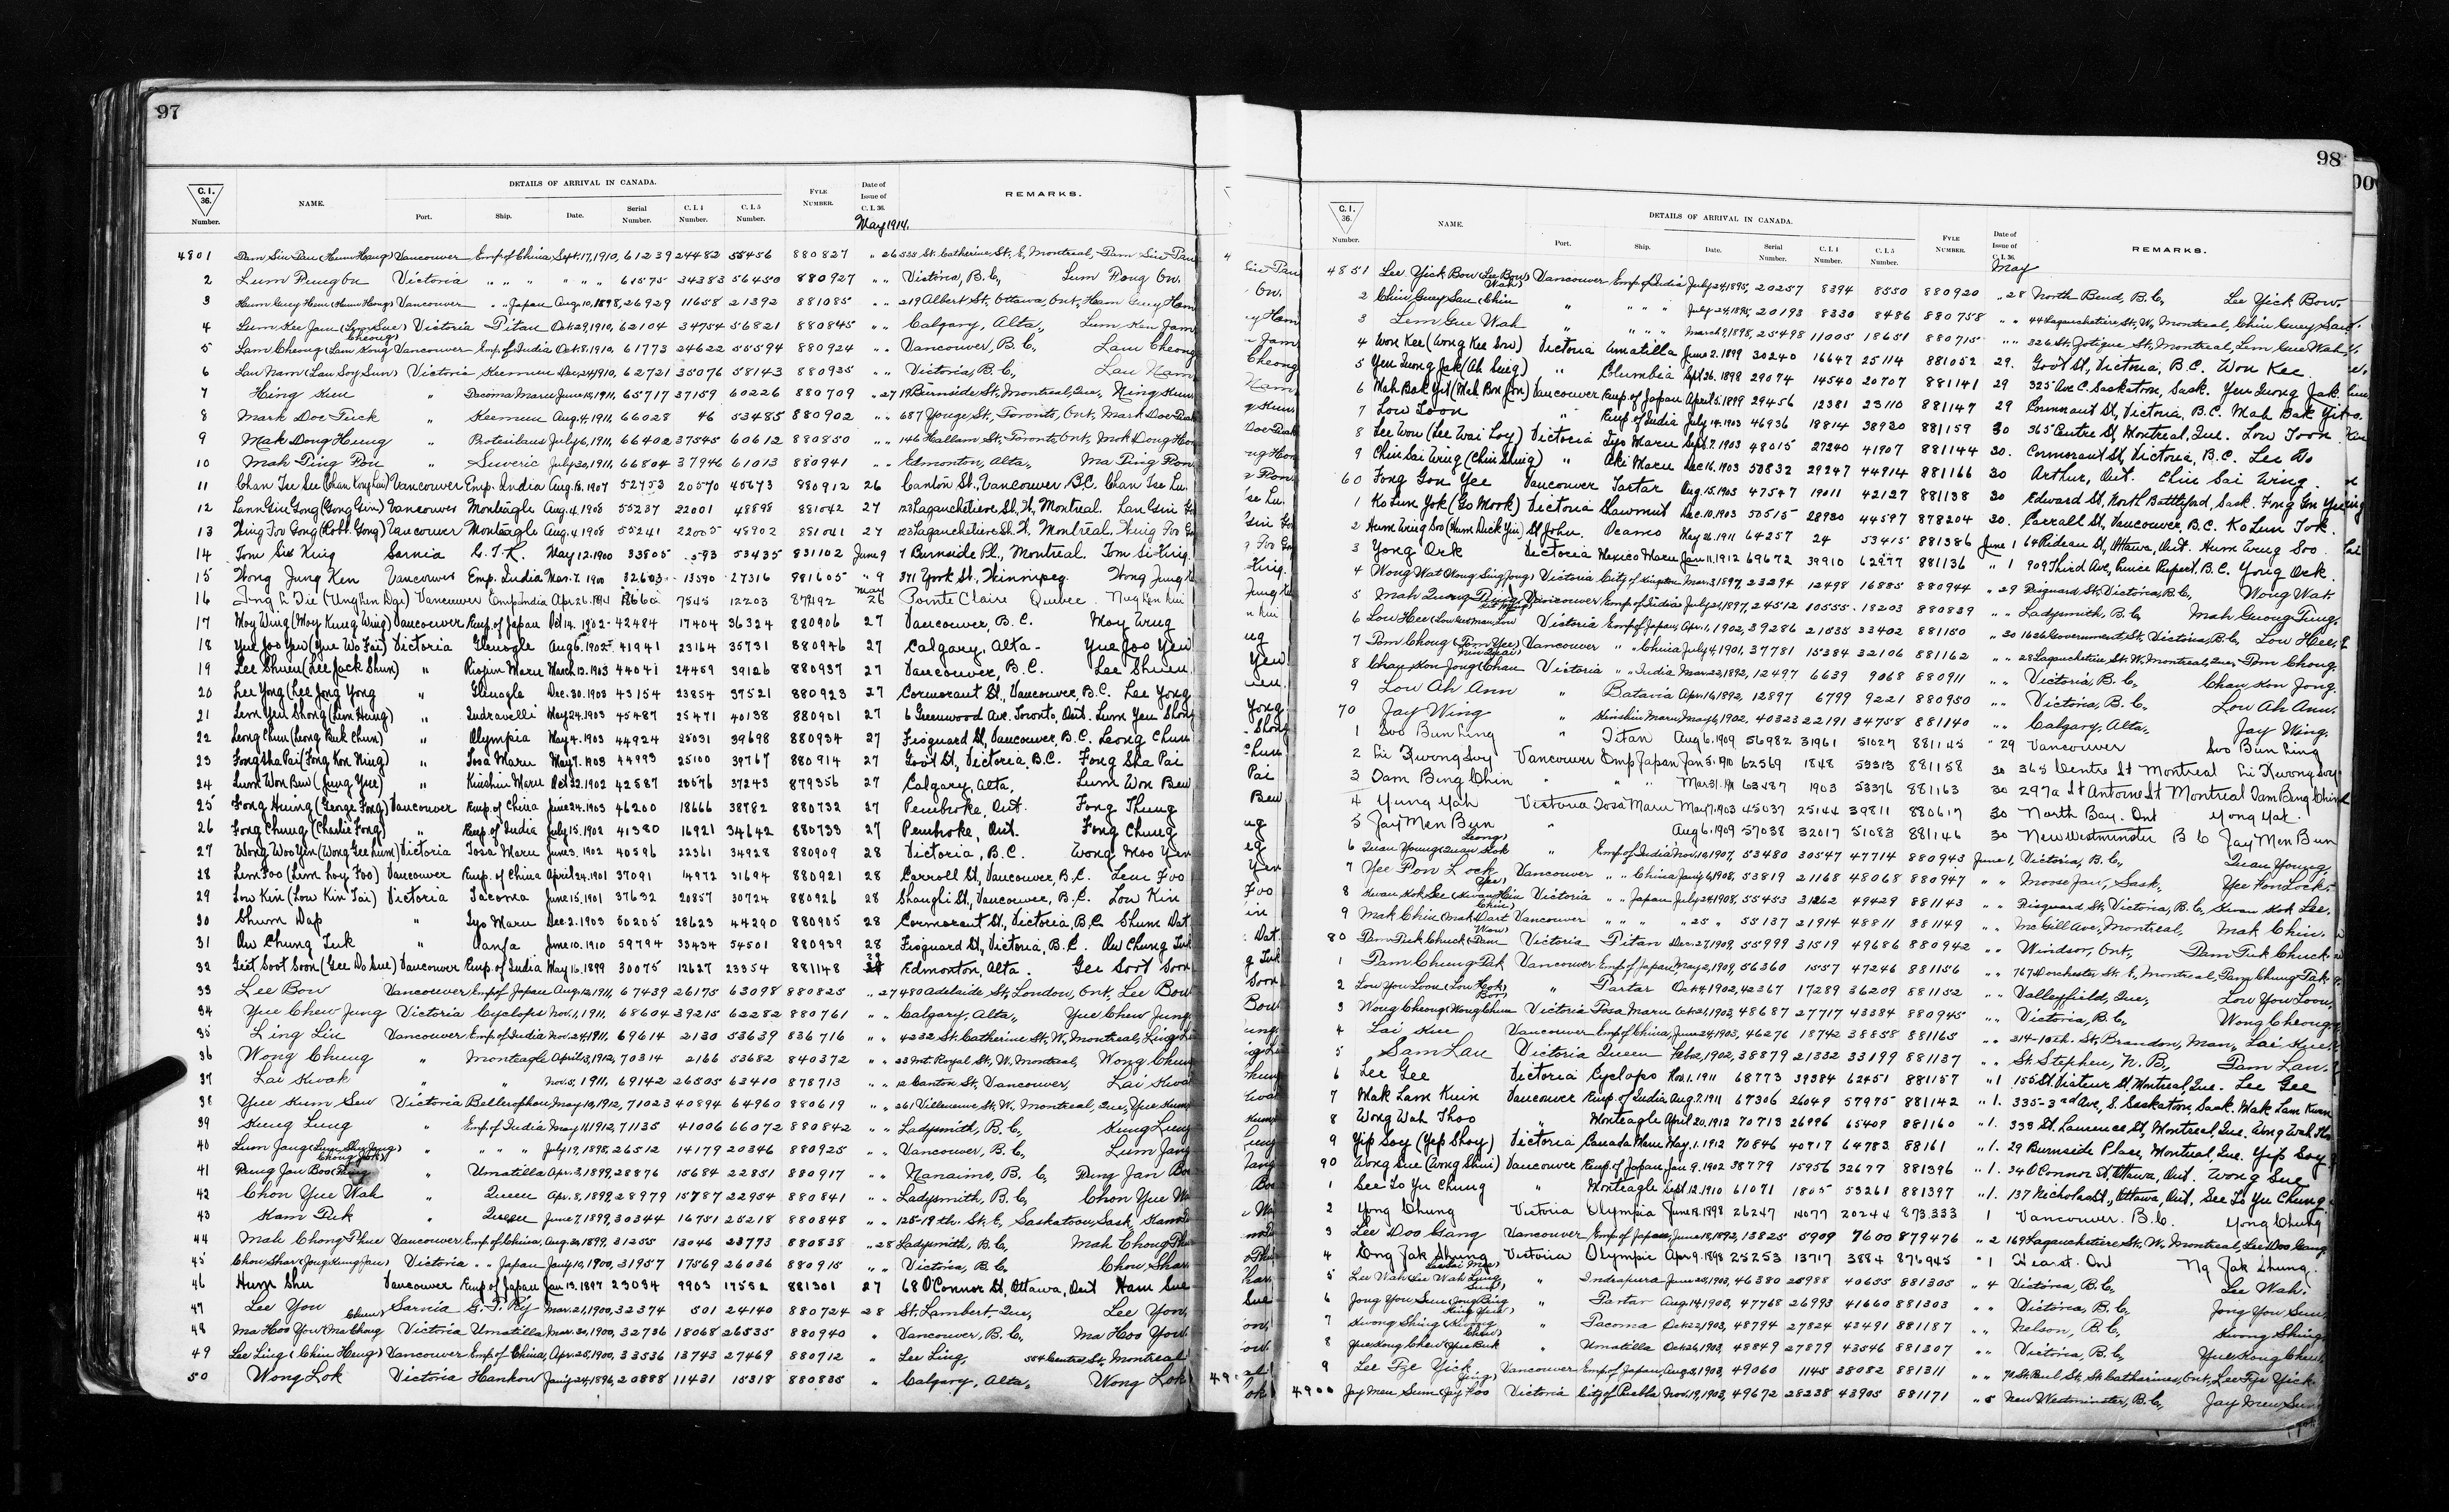 97
C.I. 36. Number. NAME. DETAILS OF ARRIVAL IN CANADA. Port. Ship. Date. Serial Number. C.I.4 Number. C.I.5 Number. FYLE NUMBER. Date of Issue of C.I.36. REMARKS.
May 1914.
4801 Vancouver Emp of China Sept. 17, 1910, 61239 24482 55456 880827 " 26 535 St. Catherine St. E, Montreal,
2 Victoria " " " " " " 61575 34383 56450 880927 " " Victoria, B.C,
3 Vancouver " " Japan Aug. 10, 1898, 26929 11658 21392 881085 " " 219 Albert St, Ottawa, Ont,
4 Victoria Titan Oct. 29, 1910, 62104 34754 56821 880845 " " Calgary, Alta,
5 Lam Cheong Vancouver Emp. of India Oct. 8, 1910, 61773 24622 55594 880924 " " Vancouver, B.C, Lam Cheong
6 Lau Nam (Lau Soy Sun) Victoria Keemun Dec. 24, 1910, 62721 35076 58143 880935 " " Victoria, B.C, Lau Nam
7 Hing Kun " Tacoma Maru June 18, 1911, 65717 37159 60226 880709 " 27 19 Burnside St, Montreal, Que, Hing Kun
8 Mark Doe Tuck " Keemun Aug. 4, 1911, 66028 46 53485 880902 " " 687 Yonge St, Toronto, Ont, Mark Doe Tuck
9 Mak Dong Heung " Protesilaus July 6, 1911, 66402 37545 60612 880850 " " 146 Hallam St, Toronto, Ont,
10 Mah Ping Pon " Suveric July 20, 1911, 66804 37946 61013 880941 " " Edmonton, Alta, Ma Ping Pon
11 Vancouver Emp. India Aug. 18. 1907 52753 20570 45673 880912 26 Canton St., Vancouver B.C. Chan Tse Lu
12 Vancouver Monteagle Aug. 4. 1908 55237 22001 48898 881042 27 123 Lagauchetiere St. W. Montreal.
13 Vancouver Monteagle Aug. 4. 1908 55241 22005 48902 881041 27 123 Lagauchetiere St. W. Montreal.
14 Tom Sis King Sarnia G.T.R. May 12. 1900 33805 593 53435 831102 June 9 7 Burnside Pl., Montreal. Tom Si King
15 Wong Jung Ken Vancouver Emp. India Mar. 7. 1900 32603 13590 27316 881605 " 9 371 York St., Winnipeg. Wong Jung
16 Vancouver Emp India 7545 12203 May 26 Pointe Claire Quebec
17 Moy Wing (Moy Kung Wing) Vancouver Emp. of Japan Oct 14. 1902 42484 17404 36324 880906 27 Vancouver, B.C. Moy Wing
18 Yue Joo Yen (Yue Wo Fai) Victoria Glenogle Aug 6. 1902 41941 23164 35731 880946 27 Calgary, Alta. Yue Joo Yen
19 Lee Shuen (Lee Jack Shun) " Riojun Maru March 13. 1903 44041 24459 39126 880937 27 Vancouver, B.C. Lee Shuen
20 Lee Yong (Lee Jong Yong " Glenogle Dec. 30. 1903 43154 23854 37521 880923 27 Cormorant St., Vancouver, B.C. Lee Yong
21 Lem Yen Shong (Lem Hung) " Indravelli May 24. 1903 45487 25471 40138 880901 27 6 Greenwood Ave. Toronto, Ont. Lum Yen Shong
22 Leong Chun (Leong Buk Chun) " Olympia May 4. 1903 44924 25031 39698 880934 27 Fisguard St, Vancouver, B.C. Leong Chun
23 Fong Sha Pai (Fong Kon Ning) " Tosa Maru May 7. 1903 44993 25100 39767 880914 27 Goot St, Victoria, B.C. Fong Sha Pai
24 Lum Won Beu (Jung Yue) " Kinshiu Maru Oct 22. 1902 42587 23576 37243 879356 27 Calgary, Alta, Lum Won Beu
25 Fong Hung (George Fong) Vancouver Emp. of China June 24. 1903 46200 18666 38782 880732 27 Pembroke, Ont. Fong Thung
26 Fong Chung (Charlie Fong) " Emp. of India July 15. 1902 41380 16921 34642 880733 27 Pembroke, Ont. Fong Chung
27 Wong Woo Yen (Wong Gee Lum) Victoria Tosa Maru June 3. 1902 40596 22361 34928 880909 28 Victoria, B.C. Wong Moo Yen
28 Lem Foo (Lim Loy Foo) Vancouver Emp. of China April 24. 1901 37091 14972 31694 880921 28 Carroll St, Vancouver, B.C. Lem Foo
29 Low Kin (Low Kin Tai) Victoria Tacoma June 15. 1901 37632 20857 30724 880926 28 Shanghi St, Vancouver, B.C. Low Kin
30 Chum Dap " Iyo Maru Dec. 2. 1903 50205 28623 44290 880905 28 Cormorant St, Victoria, B.C. Shum Dat
31 Au Chung Tuk " Oanfa June 10. 1910 59794 33434 54501 880939 28 Fisguard St, Victoria, B.C. Au Chung Tuk
32 Geet Soot Soon (Gee Do Sue) Vancouver Emp. of India May 16. 1899 30075 12627 23354 881148 Edmonton, Alta. Gee Soot Soon
33 Lee Bow Vancouver Emp of Japan Aug. 12, 1911, 67439 26175 63098 880825 " 27 480 Adelaide St, London, Ont, Lee Bow
34 Yue Chew Jung Victoria Cyclops Nov. 1, 1911, 68604 39215 62282 880761 " " Calgary, Alta, Yue Chew Jung
35 Ling Lin Vancouver Emp of India Nov. 24, 1911, 69614 2130 53639 836716 " " 4232 St. Catherine St, W, Montreal, Ling Lin
36 Wong Chung " Monteagle April 3, 1912, 70314 2166 53682 840372 " " 23 Mt. Royal St, W, Montreal, Wong Chung
37 Lai Kwok " " Nov. 5, 1911, 69142 26505 63410 878713 " " 12 Canton St, Vancouver, Lai Kwok
38 Yue Kum Sew Victoria Bellerophon May 10, 1912, 71023 40894 64960 880619 " " 261 Villeneuve St, W, Montreal, Que, Yue Kum
39 Kung Lung " Emp of India May 14, 1912, 71135 41006 66072 880842 " " Ladysmith, B.C, Kung Lung
40 Lum Jang " " " " July 19, 1898, 26512 14179 20346 880925 " " Vancouver, B.C, Lum Jang
41 Pung Jan Boo " Umatilla Apr. 3, 1899, 28876 15684 22851 880917 " " Nanaimo, B.C, Pung Jan Boo
42 Chon Yue Wah " Queen Apr. 8, 1899, 28979 15787 22954 880841 " " Ladysmith, B.C, Chon Yue Wah
43 Kam Tuk " Queen June 7, 1899, 30344 16751 25218 880848 " " 125-19th. St. E, Saskatoon, Sask,
44 Mah Chong Phue Vancouver Emp. of China, Aug. 30, 1899, 31255 13046 23773 880838 " 28 Ladysmith, B.C, Mah Chong Phue
45 Chow Shar Victoria " " Japan Jan'y 10, 1900, 31957 17569 26036 880915 " " Victoria, B.C, Chow Shar
46 Hum Shu Vancouver Emp of Japan Jan 13. 1897 23034 9903 17582 881301 27 68 O'Connor St, Ottawa, Ont Ham Sue
47 Lee You Sarnia G.T. Ry Mar. 21, 1900, 32374 501 24140 880724 28 St. Lambert, Que, Lee You,
48 Ma Hoo You Victoria Umatilla Mar. 30, 1900, 32736 18068 26535 880940 " Vancouver, B.C, Ma Hoo You
49 Lee Ling (Chin Heng) Vancouver Emp of China, Apr. 25, 1900, 33536 13743 27469 880712 " Lee Ling, 554 Centre St, Montreal
50 Wong Lok Victoria Hankow Jan'y 24, 1896, 20888 11431 15318 880835 " Calgary, Alta, Wong Lok
98
C.I. 36. Number. NAME. DETAILS OF ARRIVAL IN CANADA. Port. Ship. Date. Serial Number. C.I.4 Number. C.I.5 Number. FYLE NUMBER. Date of Issue of C.I.36. REMARKS.
May
4851 Lee Yick Bow (Lee Bow Wah) Vancouver Emp. of India July 24, 1895, 20257 8394 8550 880920 " 28 North Bend, B.C, Lee Yick Bow
2 Chin Guey Sau " " " " July 24, 1895, 20193 8330 8486 880758 " " 44 Lagauchetiere St, W, Montreal, Chin Guey Sau
3 Lem Gue Wah " " " " March 9, 1898, 25498 11005 18651 880715 " " 326 St, Montreal, Lem Gue Wah
4 Won Kee (Wong Kee Sow) Victoria Umatilla June 2. 1899 30240 16647 25114 881052 29. Goot St, Victoria, B.C. Won Kee
5 Yen Guong Jak (Ah Suig) " Columbia Sept 26. 1898 29074 14540 20707 881141 29 325 Ave C. Saskatoon, Sask. Yen Guong Jak
6 Mah Bak Yit (Mah Bon Jon) Vancouver Emp. of Japan April 5. 1899 29456 12381 23110 881147 29 Cormorant St, Victoria, B.C. Mah Bak Yit
7 Low Toon " Emp of India July 14. 1903 46936 18814 38920 881159 30 365 Centre St, Montreal, Que. Low Toon
8 Lee Wou (Lee Wai Loy) Victoria Iyo Maru Sept. 7. 1903 48015 27240 41907 881144 30. Cormorant St, Victoria, B.C.
9 Chin Sai Wing (Chin Shing) " Aki Maru Dec 16. 1903 50832 29247 44914 881166 30 Arthur, Ont. Chin Sai Wing
60 Fong Gon Yee Vancouver Tartar Aug. 15. 1903 47547 19011 42127 881138 30 Edward St, North Battleford, Sask. Fong Gon Yee
1 Ko Lun Yok (Go Mook) Victoria Shawmut Dec. 10. 1903 50515 28930 44597 878204 30. Carrall St, Vancouver, B.C.
2 Hum Wing Soo (Hum Duck Yin) St John. Ocamo May 26. 1911 64257 24 53415 881386 June 1 64 Rideau St, Ottawa, Ont. Hum Wing Soo
3 Yong Ock Victoria Mexico Maru Jan 11. 1912 69672 39910 62977 881136 " 1 909 Third Ave, Prince Rupert, B.C. Yong Ock
4 Wong Wat (Wong Sing Jong) Victoria City of Kingston Mar. 3, 1897, 23294 12498 16885 880944 " 29 Fisguard St, Victoria, B.C, Wong Wat
5 Mah Vancouver Emp. of India July 21, 1897, 24512 10555 18203 880839 " " Ladysmith, B.C,
6 Low Hee Victoria Emp. of Japan, Apr. 1, 1902, 39286 21535 33402 881150 " 30 1626 Government St, Victoria, B.C, Low Hee
7 Tom Chong (Tom Yee) Vancouver " " China July 4, 1901, 37781 15384 32106 881162 " " 28 Lagauchetiere St. W, Montreal, Que, Tom Chong
8 Chau Kon Jong Victoria " " India Mar. 22, 1892, 12497 6639 9068 880911 " " Victoria, B.C, Chau Kon Jong
9 Lou Ah Ann " Batavia Apr. 16, 1892, 12897 6799 9221 880950 " " Victoria, B.C, Lou Ah Ann
70 Jay Wing " Kinshiu Maru May 6, 1902, 40323 22191 34758 881140 " " Calgary, Alta, Jay Wing
1 Soo Bun Ling " Titan Aug 6. 1909 56982 31961 51027 881145 " 29 Vancouver Soo Bun Ling
2 Li Kwong Soy Vancouver Emp Japan Jan 5. 1910 62569 1848 53313 881158 30 365 Centre St Montreal Li Kwong Soy
3 Dam Bing Chin " " Mar 31. 1911 63487 1903 53376 881163 30 297a St Antoine St Montreal Dam Bing Chin
4 Yung Yah Victoria Tosa Maru May 7. 1903 45037 25144 39811 880617 30 North Bay. Ont Yong Yat
5 Jay Men Bun " Aug 6. 1909 57038 32017 51083 881146 30 New Westminster B C Jay Men Bun
6 Quan Young Emp of India Nov. 10, 1907, 53480 30547 47714 880943 June 1, Victoria, B.C, Quan Young,
7 Yee Fon Lock Vancouver " " China Jan'y 6, 1908, 53819 21168 48068 880947 " " Moose Jaw, Sask, Yee Fon Lock
8 Kwan Kok Lee Victoria " " Japan July 24, 1908, 55453 31262 49429 881143 " " Fisguard St, Victoria, B.C, Kwan Kok Lee
9 Mak Chin Vancouver " " " " 25 " 55137 21914 48811 881149 " " McGill Ave, Montreal, Mak Chin
80 Tam Tuk Chuck Victoria Titan Dec. 27, 1909, 55999 31519 49686 880942 " " Windsor, Ont, Tam Tuk Chuck
1 Tam Chung Tak Vancouver Emp. of Japan, May 2, 1909, 56360 1557 47246 881156 " " 767 Dorchester St. E, Montreal, Tam Chung Tak
2 Low You Loon " Tartar Oct. 4, 1902, 42367 17289 36209 881152 " " Valleyfield, Que, Low You Loon,
3 Wong Cheong (Wong Chum Victoria Tosa Maru Oct. 21, 1903, 48687 27717 43384 880945 " " Victoria, B.C, Wong Cheong
4 Lai Kue Vancouver Emp. of China, June 24, 1903, 46276 18742 38858 881165 " " 314-10th. St, Brandon, Man, Lai Kue
5 Sam Lau Victoria Queen Feb. 2, 1902, 38879 21332 33199 881137 " " St. Stephen, N.B, Tam Lau
6 Lee Gee Victoria Cyclops Nov. 1. 1911 68773 39384 62451 881157 " 1 155 St. Viateur St, Montreal, Que. Lee Gee
7 Mak Lam Kuin Vancouver Emp. of India Aug. 7. 1911 67306 26049 57975 881142 " 1. 335-3rd Ave, S. Saskatoon, Sask. Mak Lam Kwan
8 Wong Wah Thoo " Monteagle April 20. 1912 70713 26096 65409 881160 " 1. 333 St. Laurence St, Montreal, Que. Wong Wah
9 Yip Soy (Yip Shoy) Victoria Canada Maru May. 1. 1912 70846 40717 64783 88161 " 1. 29 Burnside Place, Montreal, Que. Yip Soy
90 Wong Sue (Wong Shui) Vancouver Emp. of Japan Jan 9. 1902 38779 15956 32677 881396 " 1. 340 Connor St, Ottawa, Ont. Wong Sue
1 See To Yu Chung " Monteagle Sept. 12. 1910 61071 1805 53261 881397 " 1. 137 Nicholas St., Ottawa, Ont. See To Yu Chung
2 Yong Chung Victoria Olympia June 18. 1898 26247 14077 20244 873.333 1 Vancouver. B.C. Yong Chung
3 Lee Doo Gang Vancouver Emp. of Japan, June 18, 1892, 13825 5909 7600 879476 " 2 169 Lagauchetiere St. W, Montreal, Lee Doo Gang
4 Ong Jak Shung Victoria Olympic Apr 9. 1898 25253 13717 3884 876945 " 1 Hearst. Ont Ng Jak Shung.
5 Lee Wah " Indrapura June 25, 1903, 46380 25988 40655 881305 " 4 Victoria, B.C, Lee Wah
6 Jong You Sun " Tartar Aug. 14, 1903, 47768 26993 41660 881303 " " Victoria, B.C, Jong You Sun
7 Kwong Shing " Tacoma Oct. 22, 1903, 48794 27824 43491 881187 " " Nelson, B.C, Kwong Shing
8 Yue Kong Chew " Umatilla Oct. 26, 1903, 48849 27879 43546 881307 " " Victoria, B.C, Yue Kong Chew
9 Lee Tze Yick Vancouver Emp. of Japan, Aug. 3, 1903, 49060 1145 38082 881311 " " 70 St. Paul St, St. Catharines, Ont, Lee Tze Yick
4900 Jay Men Sum (Jay Foo Victoria City of Puebla Nov. 19, 1903, 49672 28238 43905 881171 " 5 New Westminster, B.C, Jay Men Sum